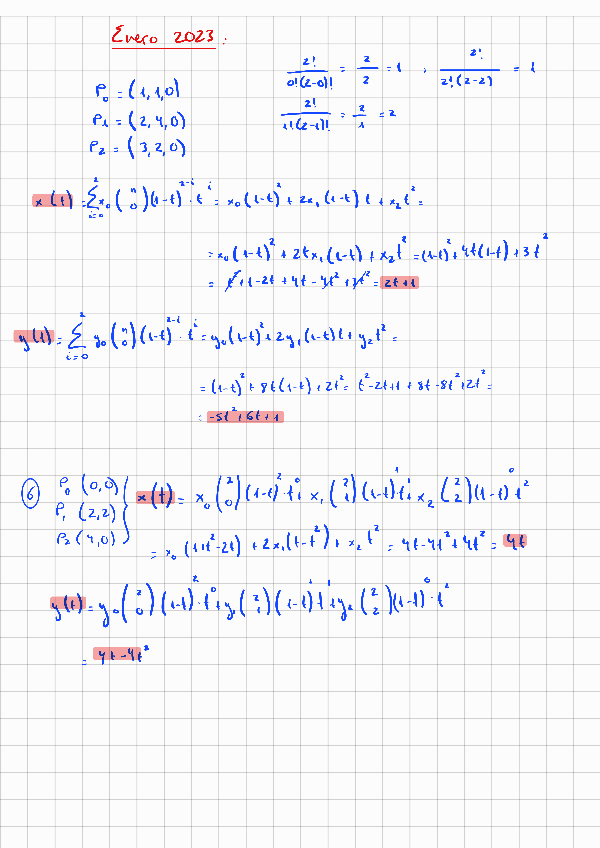 Enero 2023.
2!/0!(2-0)! = 2/2 = 1 , 2!/2!(2-2) = 1
P₀ = (1,1,0)
2!/1!(2-1)! = 2/1 = 2
P₁ = (2,4,0)
P₂ = (3,2,0)
x(t) = Σ_{i=0}^{2} x₀ (n 0) (1-t)^{2-i} · t^i = x₀(1-t)² + 2x₁(1-t)t + x₂t² =
= x₀(1-t)² + 2tx₁(1-t) + x₂t² = (1-t)² + 4t(1-t) + 3t²
= t² + 1 - 2t + 4t - 4t² + 3t² = 2t+1
y(t) = Σ_{i=0}^{2} y₀ (n 0) (1-t)^{2-i} · t^i = y₀(1-t)² + 2y₁(1-t)t + y₂t² =
= (1-t)² + 8t(1-t) + 2t² = t² - 2t + 1 + 8t - 8t² + 2t² =
= -5t² + 6t + 1
6 P₀ (0,0) x(t) = x₀ (2 0) (1-t)² · t⁰ + x₁ (2 1) (1-t)¹ · t¹ + x₂ (2 2) (1-t)⁰ t²
P₁ (2,2)
P₂ (4,0)
= x₀ (1+t²-2t) + 2x₁(t-t²) + x₂t² = 4t - 4t² + 4t² = 4t
y(t) = y₀ (2 0) (1-t)² · t⁰ + y₁ (2 1) (1-t)¹ t¹ + y₂ (2 2) (1-t)⁰ · t²
= 4t - 4t²